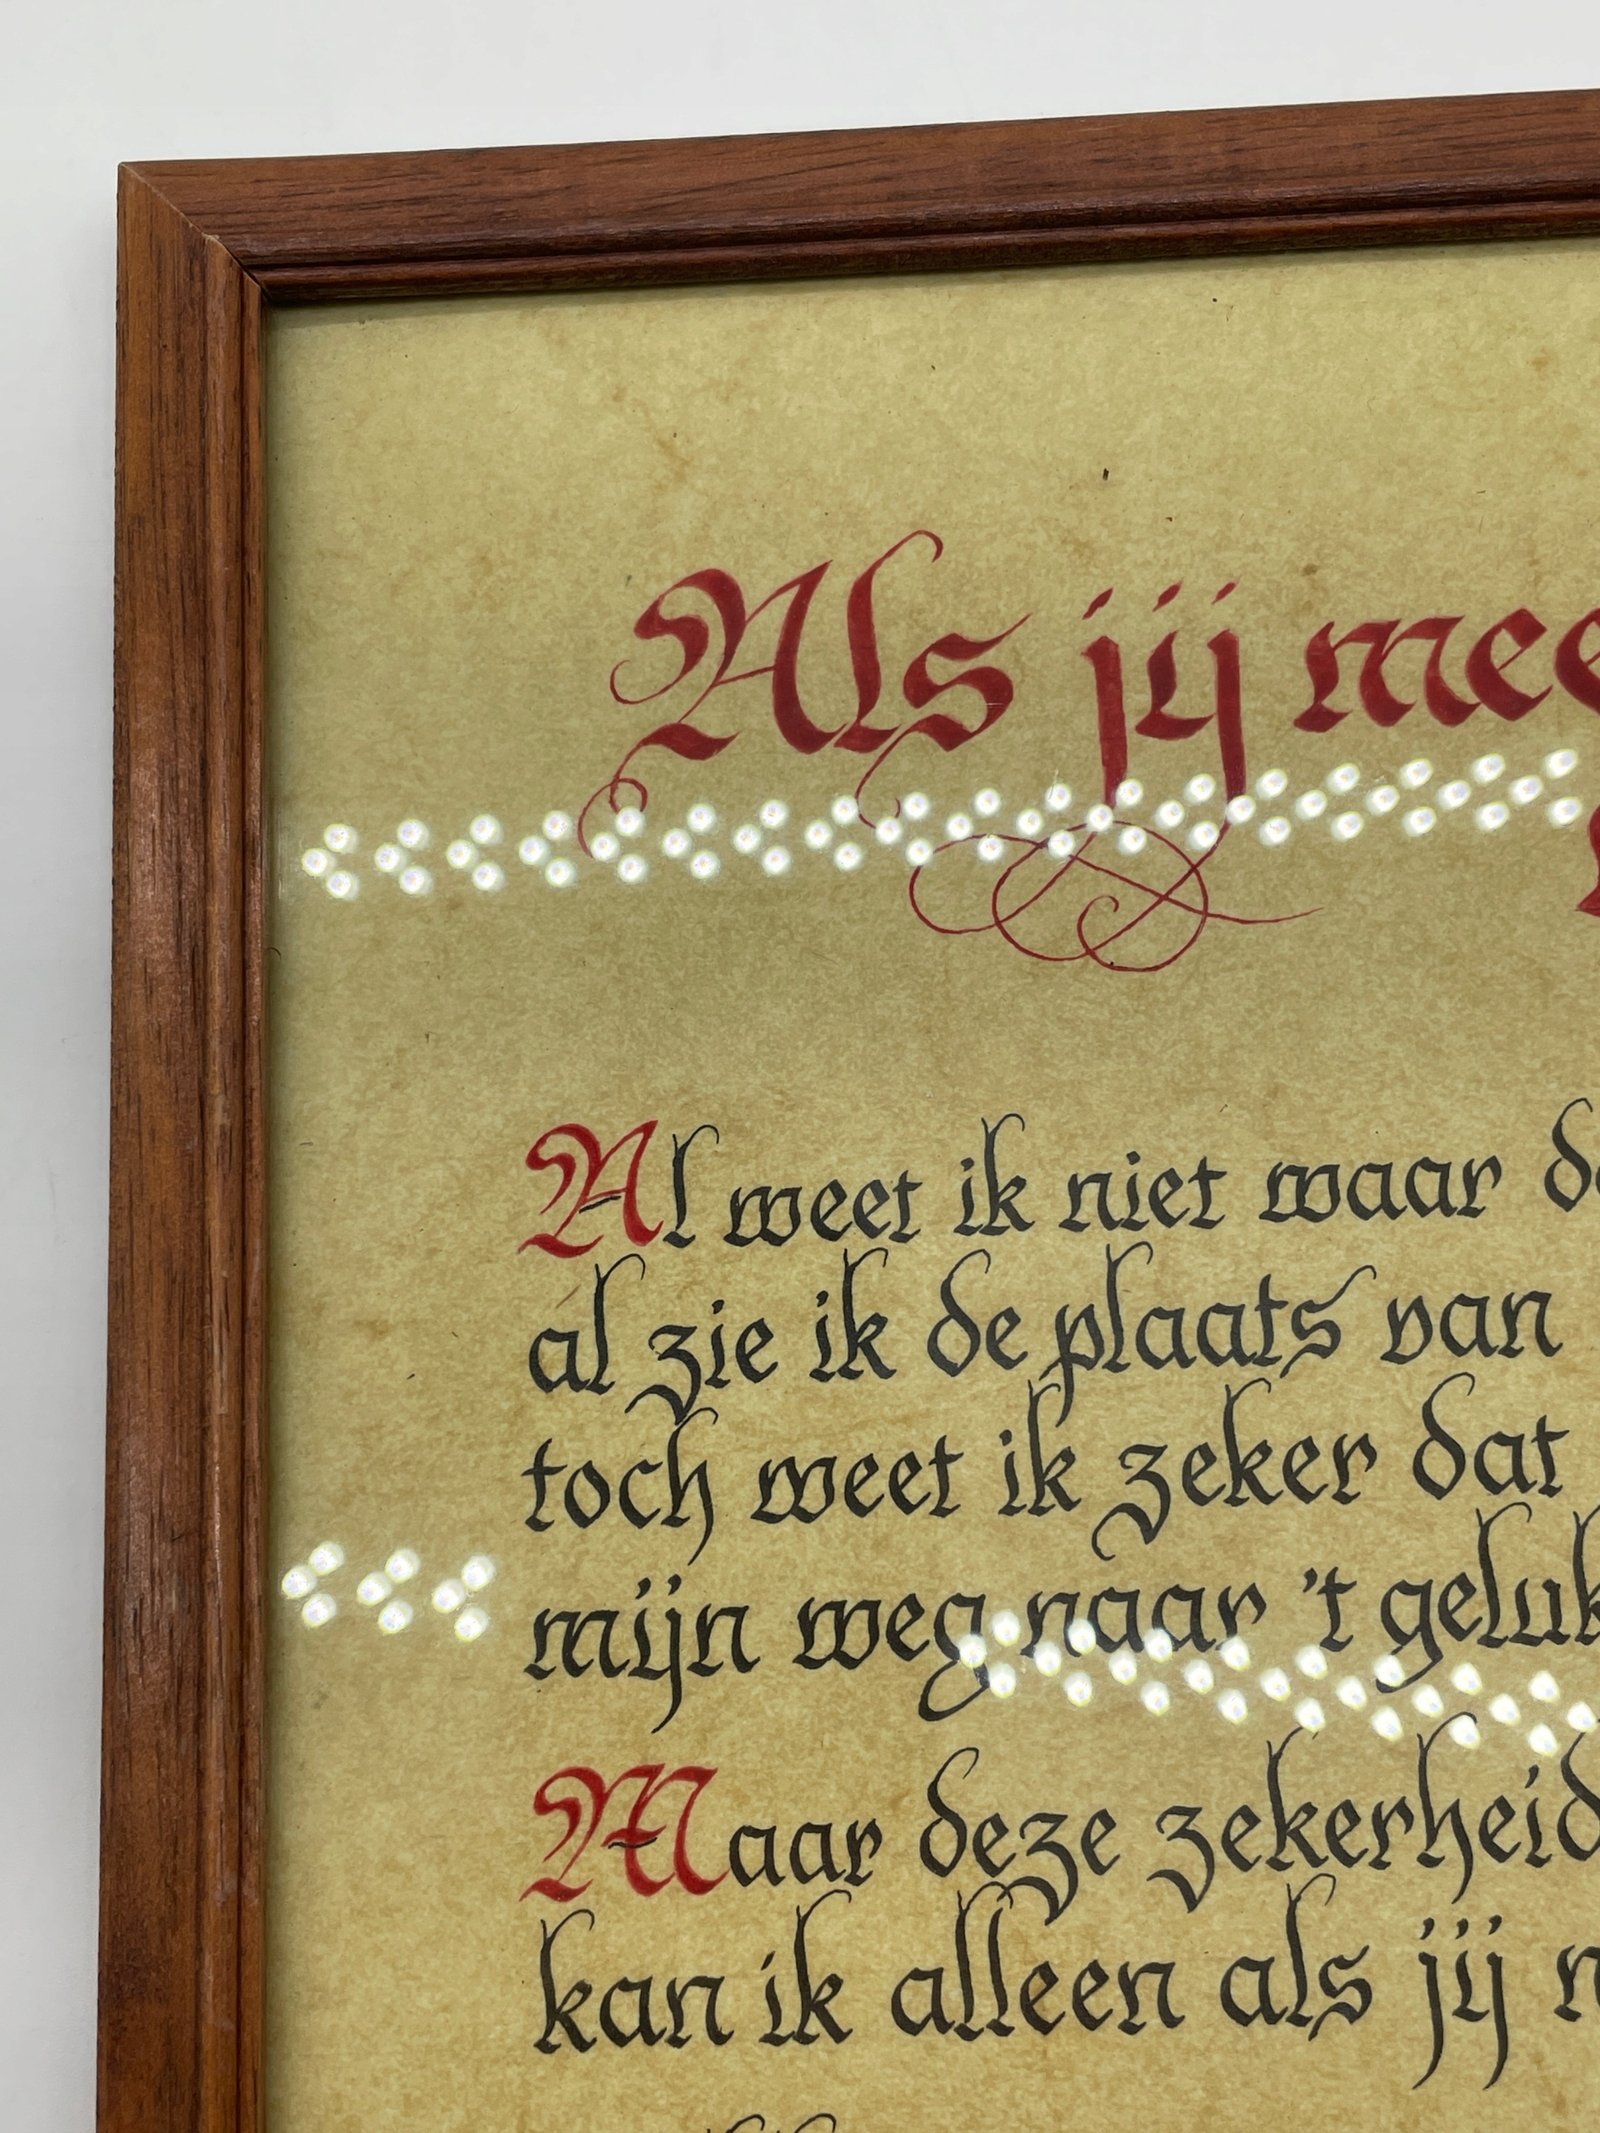 Als jij mee
Al weet ik niet waar
al zie ik de plaats van
toch weet ik zeker dat
mijn weg naar 't geluk
Maar deze zekerheid
kan ik alleen als jij